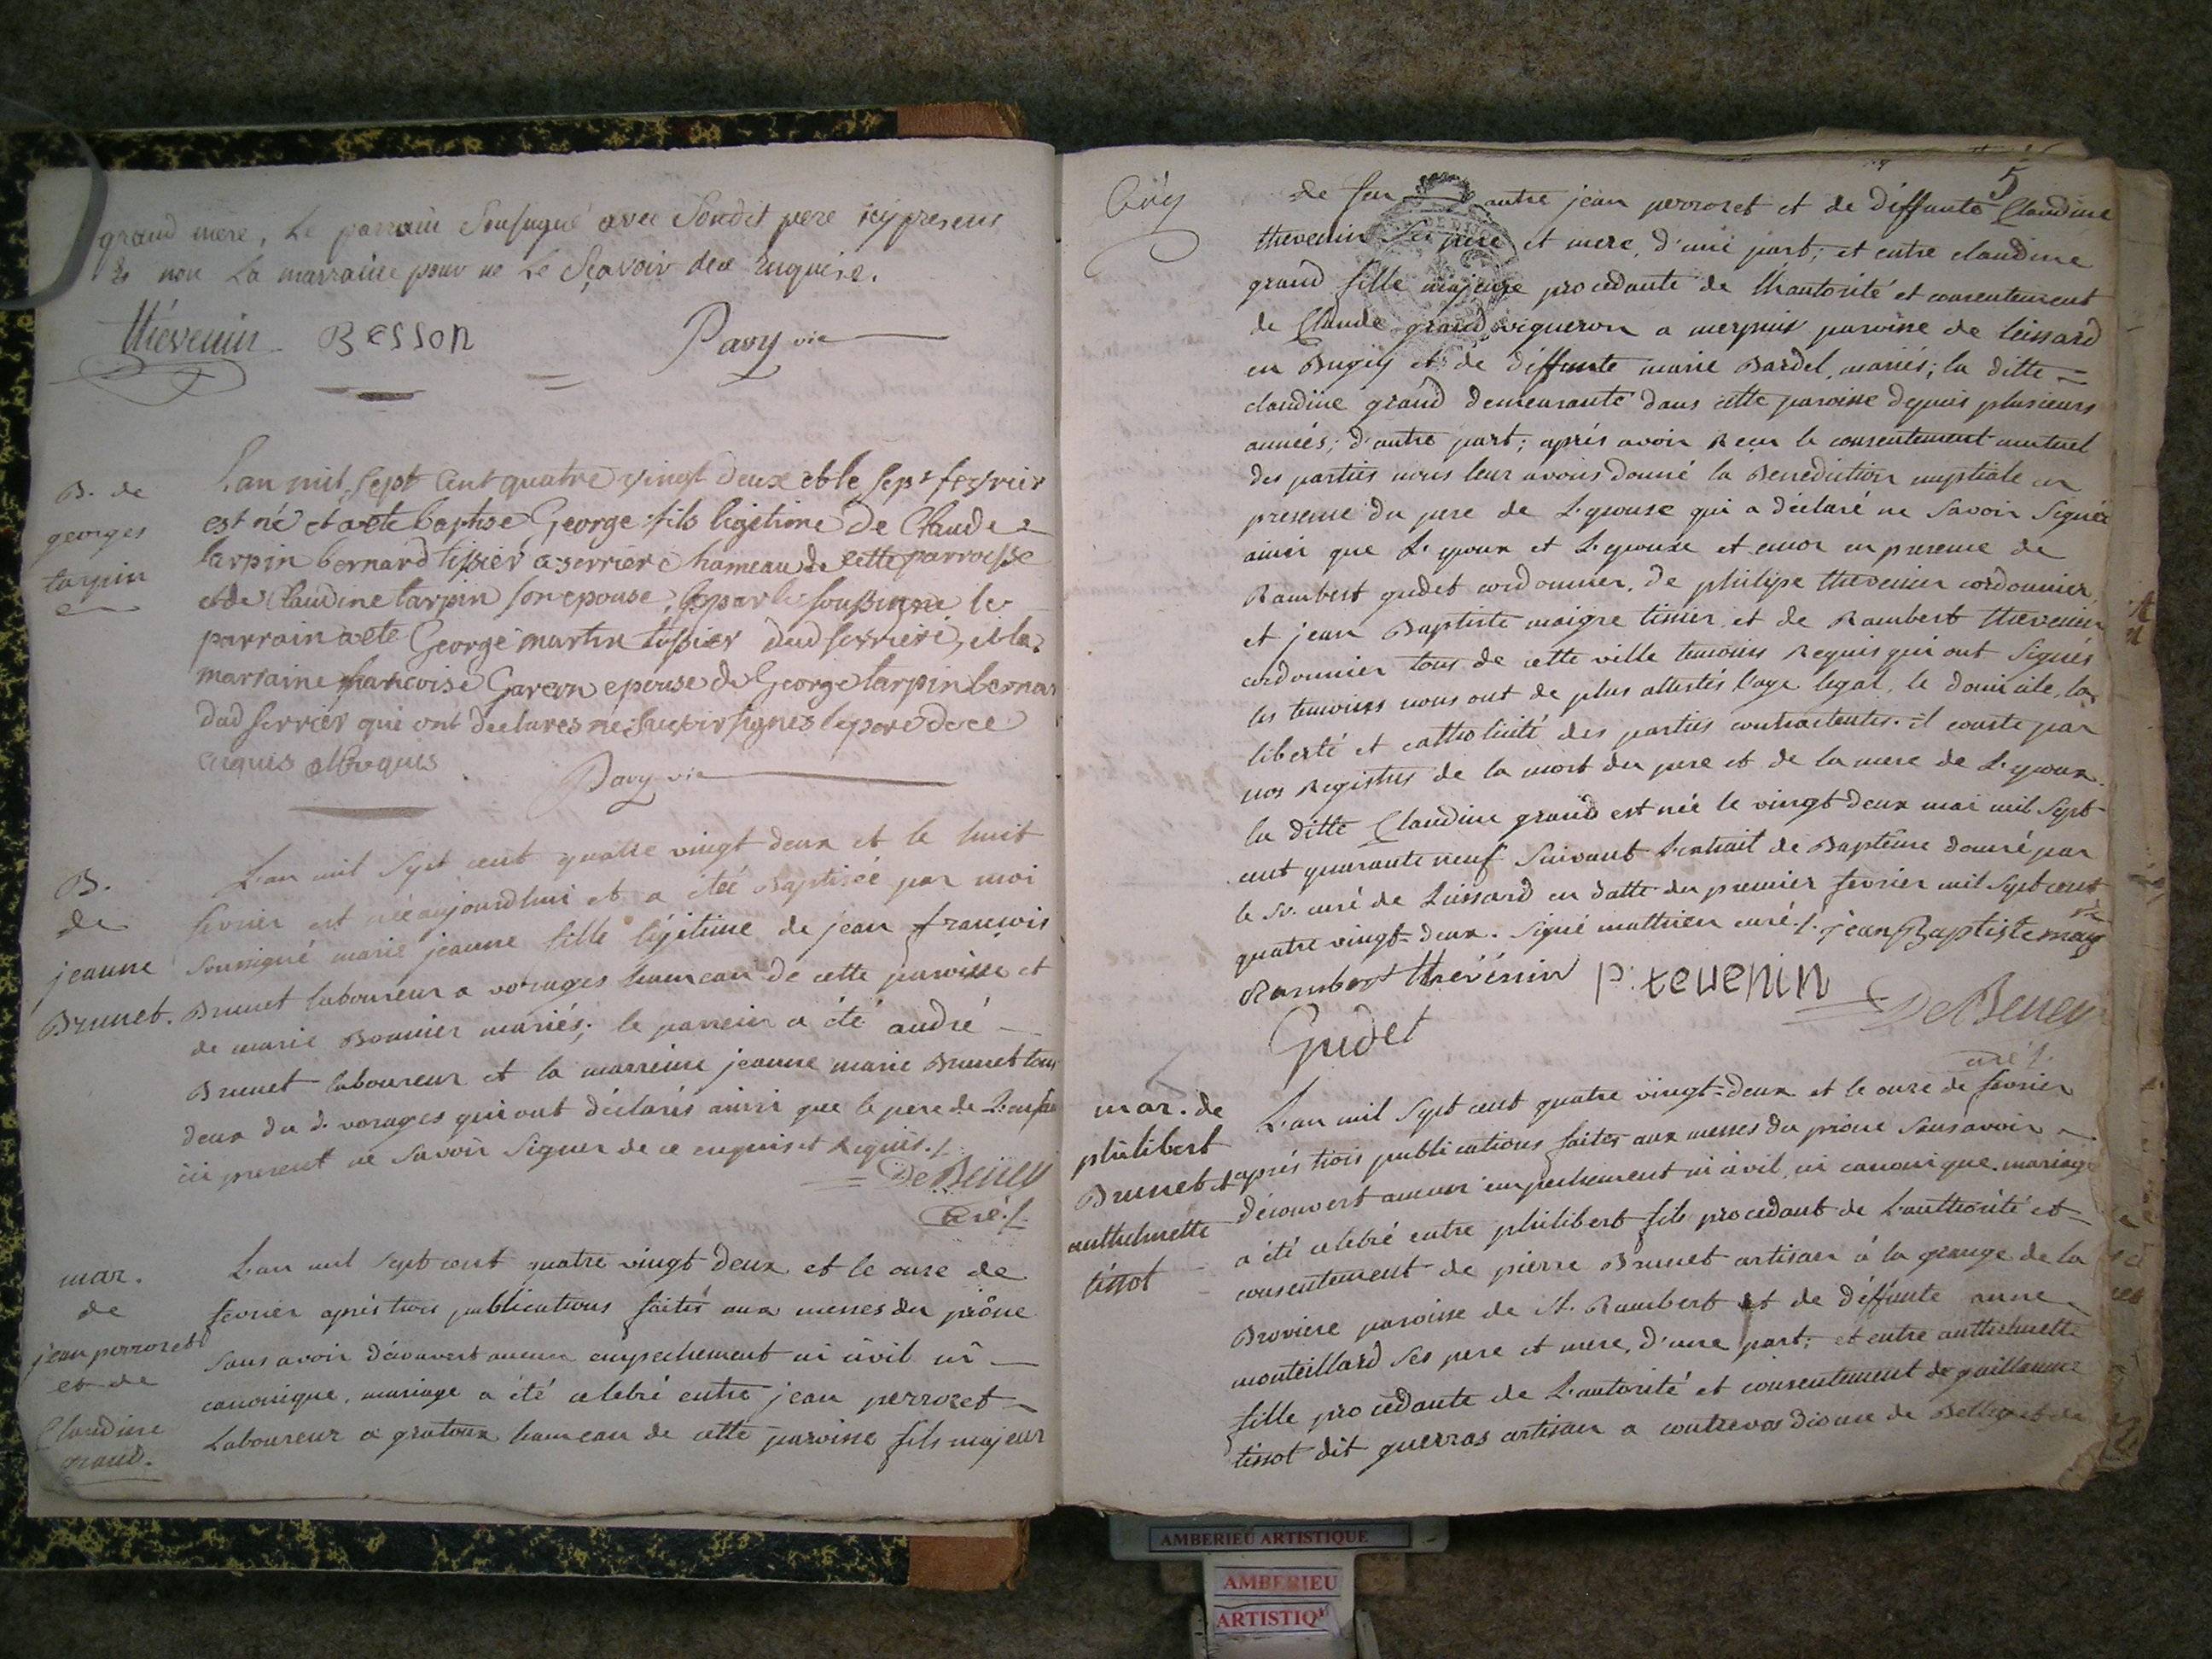 grand mere, le parrain sousigné avec sondit pere icy presens
& non la marraine pour ne le sçavoir de ce enquise.
thévenin Besson Pavy vic
B. de
georges
tarpin
Lan mil sept cent quatre vingt deux et le sept fevrier
est né et a ete baptise George fils legetime de Claude
tarpin bernard tissier a serriere hameau de cette parroisse
et de Claudine tarpin son epouse, par le soussigne le
parrain a ete George martin tissier dud serriere, et la
marraine francoise Garcon epouse de George tarpin bernar
dud serrier qui ont declares ne scavoir signes le pere de ce
enquis et requis
Pavy vic
B.
de
jeanne
Brunet.
L'an mil sept cent quatre vingt deux et le huit
fevrier est née aujourdhui et a été Baptisée par moi
soussigné marie jeanne fille légitime de jean françois
Brunet laboureur a vorages hameau de cette paroisse et
de marie Bonnier mariés; le parrein a été andré
Brunet laboureur et la marreine jeanne marie Brunet tous
deux du d. vorages qui ont déclarés ainsi que le pere de L'enfan
ici present ne savoir signer de ce enquis et Requis./.
DeBeney
curé./.
mar.
de
jean perrozet
et de
Claudine
grand.
L'an mil sept cent quatre vingt deux et le onze de
fevrier aprés trois publications faites aux messes du prône
sans avoir découvert aucun empechement ni civil ni
canonique, mariage a été celebré entre jean perrozet
Laboureur a gratoux hameau de cette paroisse fils majeur
5
de feu autre jean perrozet et de deffunte Claudine
thevenin ses pere et mere, d'une part; et entre claudine
grand fille majeure procedante de l'hautorité et consentement
de Claude grand vigneron a merpuis paroisse de leissard
en Bugey et de deffunte marie Bardel, mariés; la ditte
claudine grand demeurante dans cette paroisse depuis plusieurs
années; d'autre part; aprés avoir Reçu le consentement mutuel
des parties nous leur avons donné la Benediction nuptiale en
presence du pere de L'epouse qui a déclaré ne savoir signer
ainsi que L'epoux et L'epouse et encor en presence de
Rambert gudet cordonnier, de philipe thevenin cordonnier,
et jean Baptiste maigre tissier, et de Rambert thevenin
cordonnier tous de cette ville temoins Requis qui ont signés
les temoins nous ont de plus attestés l'age legal, le domicile, la
liberté et catholicité des parties contractantes. il conste par
nos Registres de la mort du pere et de la mere de L'epoux.
la ditte Claudine grand est née le vingt deux mai mil sept
cent quarante neuf suivant L'extrait de Baptême donné par
le Sr. curé de Leissard en datte du premier fevrier mil sept cent
quatre vingt-deux. signé matthieu curé./. jean Baptiste maigre
Rambert thévenin P. tevenin
DeBeney
Gudet
curé./.
mar. de
philibert
Brunet et
anthelmette
tissot
L'an mil sept cent quatre vingt-deux et le onze de fevrier
aprés trois publications faites aux messes du prone sans avoir
découvert aucun empechement ni civil, ni canonique. mariage
a été celebré entre philibert fils procedant de L'authorité et
consentement de pierre Brunet artisan à la grange de la
Broviere paroisse de St. Rambert et de deffunte anne
monteillard ses pere et mere, d'une part; et entre anthelmette
fille procedante de L'autorité et consentement de guillaume
tissot dit guerras artisan a contrevos diocese de Belley et de
AMBERIEU ARTISTIQUE
AMBERIEU
ARTISTIQ